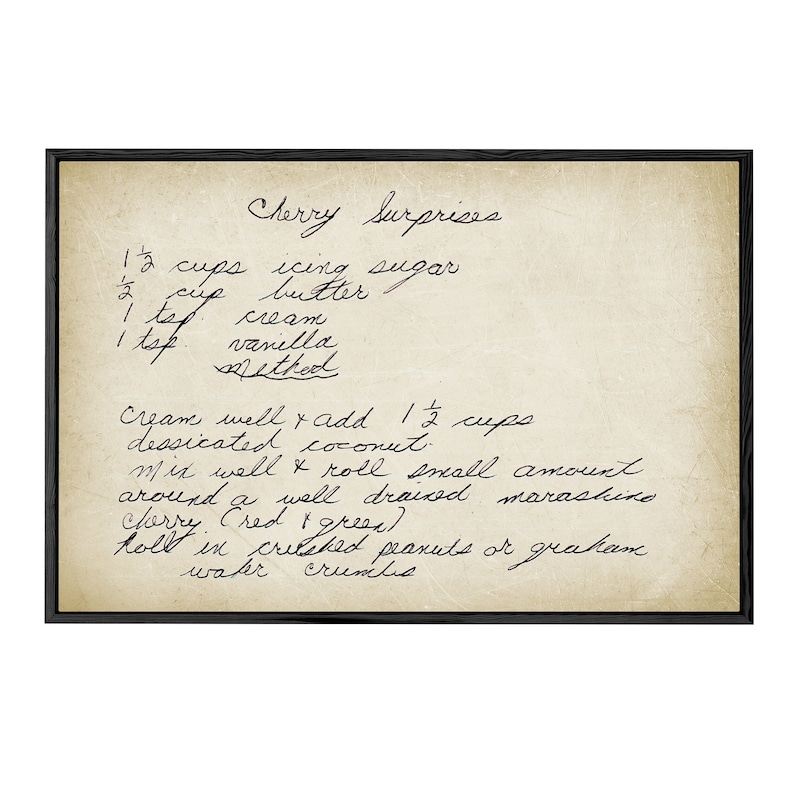 Cherry Surprises
1 1/2 cups icing sugar
1/2 cup butter
1 tsp. cream
1 tsp. vanilla
Method
Cream well & add 1 1/2 cups
dessicated coconut.
Mix well & roll small amount
around a well drained marashino
cherry (red & green)
Roll in crushed peanuts or graham
wafer crumbs